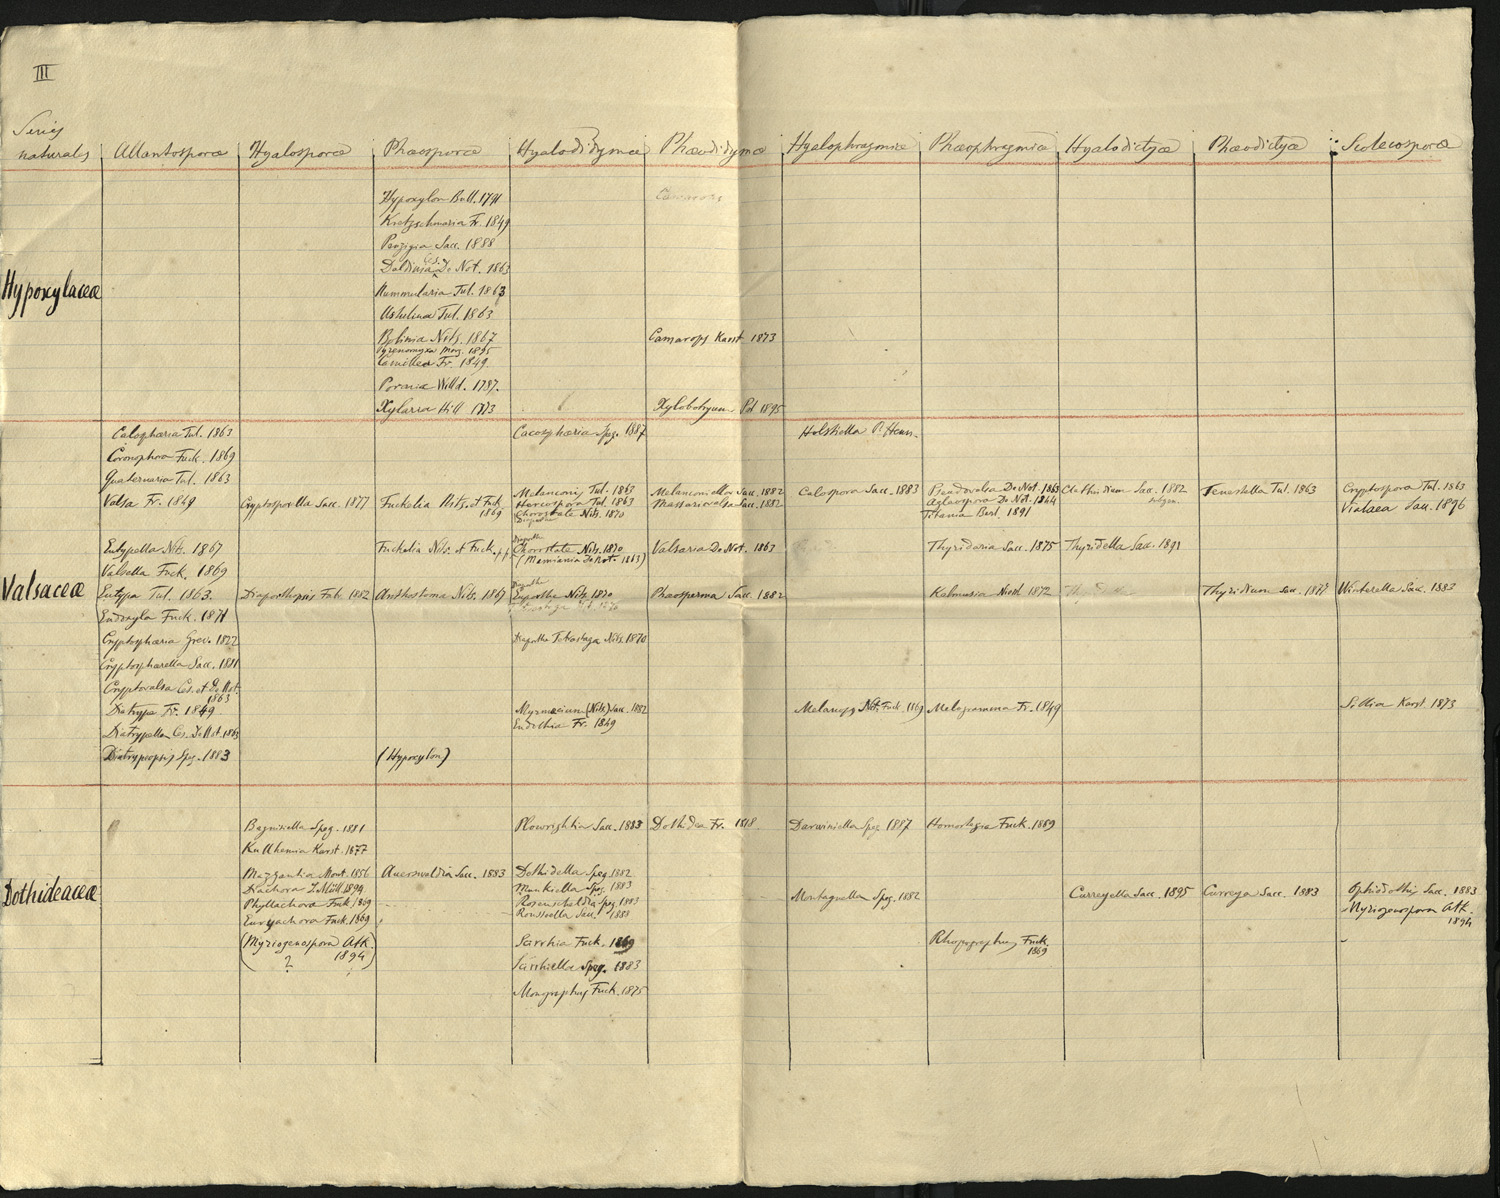 III
Series
naturales
Allantosporæ
Hyalosporæ
Phæosporæ
Hyalodidymæ
Phæodidymæ
Hyalophragmiæ
Phæophragmiæ
Hyalodictyæ
Phæodictyæ
Scolecosporæ
Hypoxylaceæ
Hypoxylon Bull. 1791
Kretzschmaria Fr. 1849
Penzigia Sacc. 1888
Ces.
Daldinia De Not. 1863
Nummularia Tul. 1863
Ustulina Tul. 1863
Bolinia Nits. 1867
Pyrenomyxa Morg. 1895
Camillea Fr. 1849
Poronia Willd. 1787.
Xylaria Hill 1773
Camarops Karst. 1873
Xylobotryum Pat 1895
Valsaceæ
Calosphæria Tul. 1863
Coronophora Fuck. 1869
Quaternaria Tul. 1863
Valsa Fr. 1849
Eutypella Nits. 1867
Valsella Fuck. 1869
Eutypa Tul. 1863.
Endoxyla Fuck. 1871
Cryptosphæria Grev. 1822
Cryptosphærella Sacc. 1881
Cryptovalsa Ces. et De Not.
1863
Diatrype Fr. 1849
Diatrypella Ces. De Not. 1863
Diatrypeopsis Speg. 1883
Cryptosporella Sacc. 1877
Diaporthopsis Fab. 1882
Fuckelia Nits. et Fuck.
1869
Fuckelia Nits. et Fuck. p.p.
Anthostoma Nits. 1867
(Hypoxylon)
Cacosphæria Speg. 1887
Melanconis Tul. 1863
Hercospora Tul. 1863
Chorostate Nits. 1870
Diaporthe
Diaporthe
Chorostate Nits. 1870
(Mamiania De Not. 1863)
Diaporthe
Euporthe Nits. 1870
Diaporthe Tetrastaga Nits. 1870
Myrmæcium (Nits.) Sacc. 1882
Endothia Fr. 1849
Melanconiella Sacc. 1882
Massariovalsa Sacc. 1882
Valsaria De Not. 1863
Phæosperma Sacc. 1882
Holstiella P. Henn.
Calospora Sacc. 1883
Melanops Nit. Fuck. 1869
Pseudovalsa De Not. 1863
Aglaospora De Not. 1844
Titania Berl. 1891
Thyridaria Sacc. 1875
Kalmusia Niessl 1872
Melogramma Fr. 1849
Clathridium Sacc. 1882
subgen.
Thyridella Sacc. 1891
Fenestella Tul. 1863
Thyridium Sacc. 1877
Cryptospora Tul. 1863
Vialaea Sacc. 1896
Winterella Sacc. 1883
Sillia Karst. 1873
Dothideaceæ
Bagnisiella Speg. 1881
Kullhemia Karst. 1877
Mazzantia Mont. 1856
Diachora J. Müll. 1894
Phyllachora Fuck. 1869
Euryachora Fuck. 1869
(Myriogenospora Atk.
1894)
?
Auerswaldia Sacc. 1883
Plowrightia Sacc. 1883
Dothidella Speg. 1882
Munkiella Speg. 1883
Rosenscheldia Speg. 1883
Roussoella Sacc. 1888
Scirrhia Fuck. 1869
Scirrhiella Speg. 1883
Monographus Fuck. 1875
Dothidea Fr. 1818
Darwiniella Speg. 1887
Montagnella Speg. 1882
Homostegia Fuck. 1869
Rhopographus Fuck.
1869
Curreyella Sacc. 1895
Curreya Sacc. 1883
Ophidothis Sacc. 1883
Myriogenospora Atk.
1894